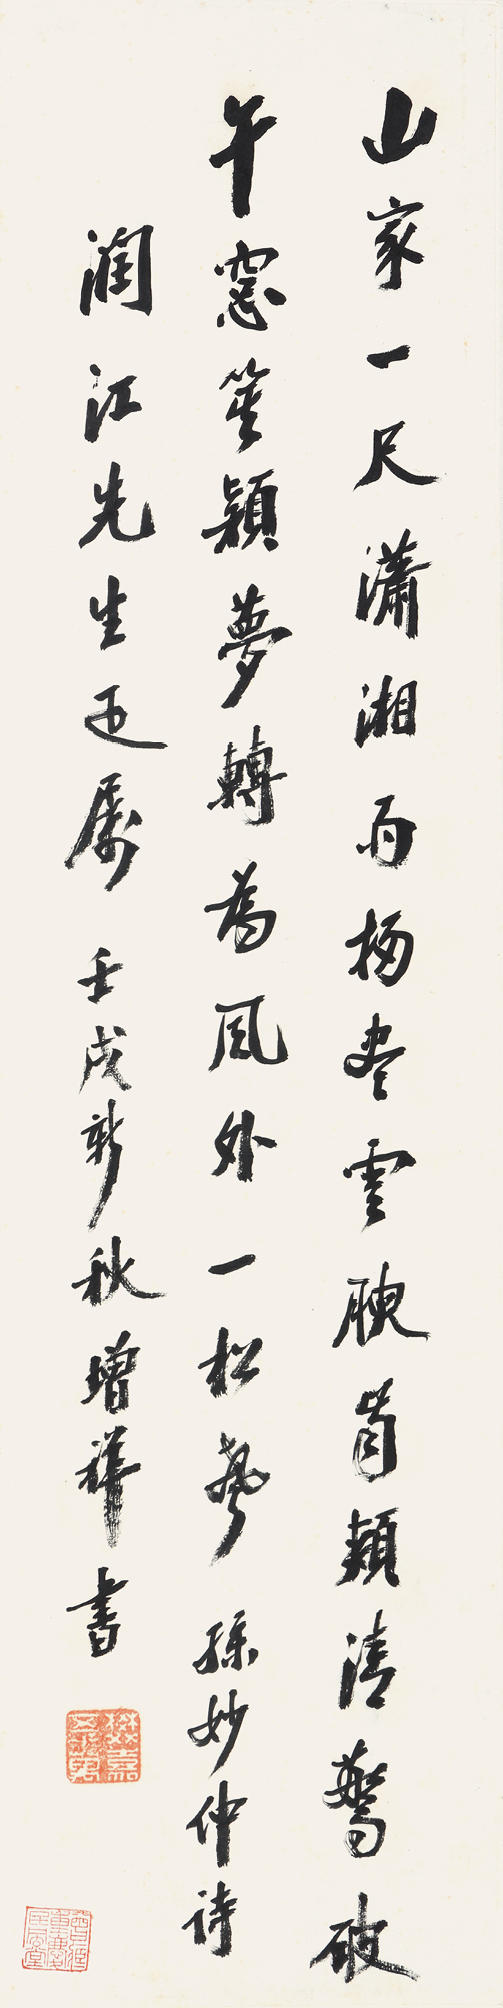 山家一尺瀟湘雨盡雲腴齒頰清驚破
午窗箕穎夢轉為風外一松聲 孫妙仲詩
潤江先生正屬 壬戌新秋增祥書